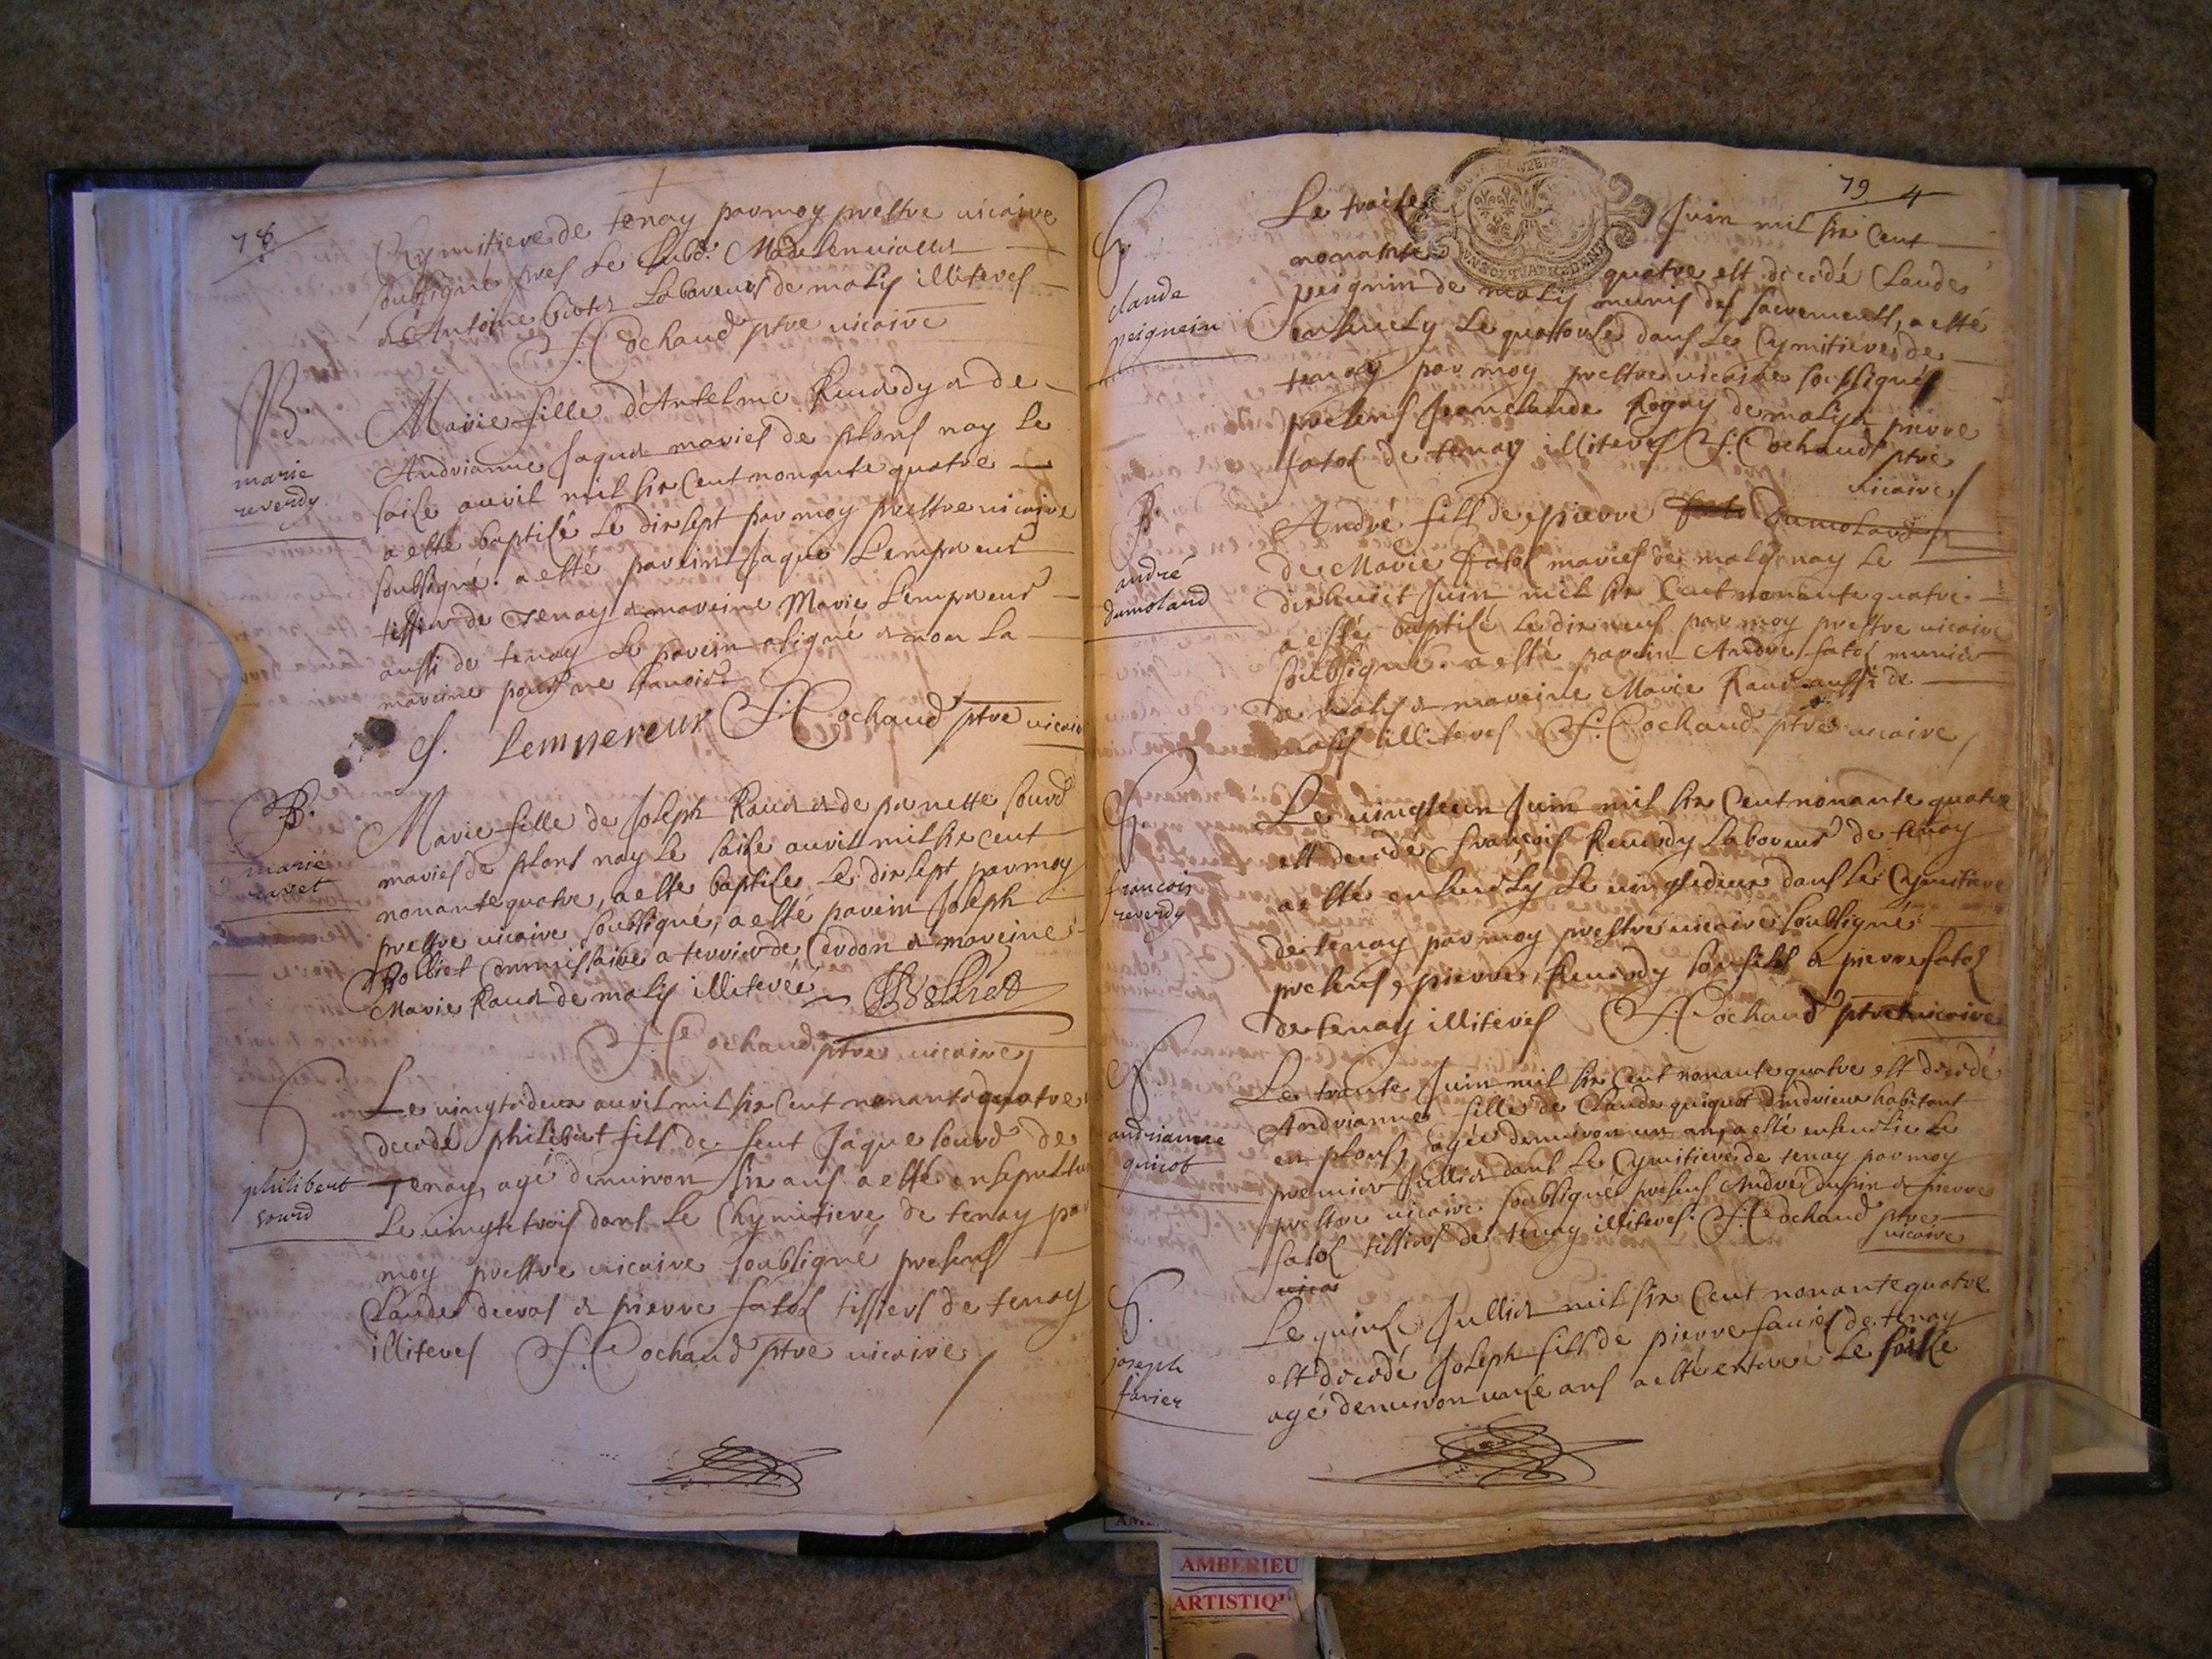 78
Chymitiere de tenay par moy prestre vicaire
soubsigné pres
et Antoine laboureurs de malis illiteres
F. Cochaud ptre vicaire
B.
marie
reverdy
Marie fille d'Antelme Reverdy et de
Andrianne Jaquet mariés de plons nay le
saise avril mil six cent nonante quatre
a esté baptisé le dixsept par moy prestre vicaire
soubsigné. a esté parein Jaque Lempereur
tissier de Tenay et mareine Marie Lempereur
aussi de tenay le parein a signé et non la
mareine pour ne scavoir
J. Lempereur F. Cochaud ptre vicaire
B.
marie
ravet
Marie fille de Joseph Ravet et de pernette Sourd
mariés de plons nay le saise avril mil six cent
nonante quatre, a esté baptisé le dixsept par moy
prestre vicaire soubsigné, a esté parein Joseph
Bolliet Commissaire a terrier de Cerdon et mareine
Marie Ravet de malis illiterée Bolliet
F. Cochaud ptre vicaire
S
philibert
sourd
Le vingtedeux avril mil six cent nonante quatre
decedé philibert fils de feut Jaque Sourd de
Tenay, agé d'environ six ans a esté ensepultur
le vingtetrois dans le Chymitiere de tenay par
moy prestre vicaire soubsigné presens
Claude decros et pierre fatol tissiers de tenay
illiteres F. Cochaud ptre vicaire
79 4
S.
claude
peignein
Le traize Juin mil six cent
nonante quatre est decedé Claude
peignin de malis munis des sacrements, a esté
ensevely le quatorse dans le Cymitiere de
tenay par moy prestre vicaire soubsigné
presens Jeanclaude Rogay de malis et pierre
fatol de tenay illiteres F. Cochaud ptre
vicaire
B.
andré
dumoland
André fils de pierre Dumolard
de Marie fatol mariés de malis nay le
dixhuict Juin mil six cent nonante quatre
a esté baptisé le dixneuf par moy prestre vicaire
soubsigné. a esté parein André fatol munier
de malis et mareine Marie Ravet aussi de
malis illiteres F. Cochaud ptre vicaire
S
francois
reverdy
Le vingteun Juin mil six cent nonante quatre
est decedé françois Reverdy laboureur de tenay
a esté ensevely le vingtedeux dans le Cymitiere
de tenay par moy prestre vicaire soubsigné
presens, pierre Reverdy son fils et pierre fatol
de tenay illiteres F. Cochaud ptre vicaire
S
andrianne
quicot
Le trante Juin mil six cent nonante quatre est decedé
Andrianne fille de Claude quiquot d'indrieux habitant
en plons, agée d'environ un an, a esté ensevelie le
premier Jullier dans le Cymitiere de tenay par moy
prestre vicaire soubsigné presens André dupin et pierre
fatol tissiers de tenay illiteres. F. Cochaud ptre
vicaire
vicai
S.
joseph
favier
Le quinse Jullier mil six cent nonante quatre
est decedé Joseph fils de pierre favier de tenay
agé d'environ unse ans a esté enterré le saise
AMBERIEU
ARTISTIQU